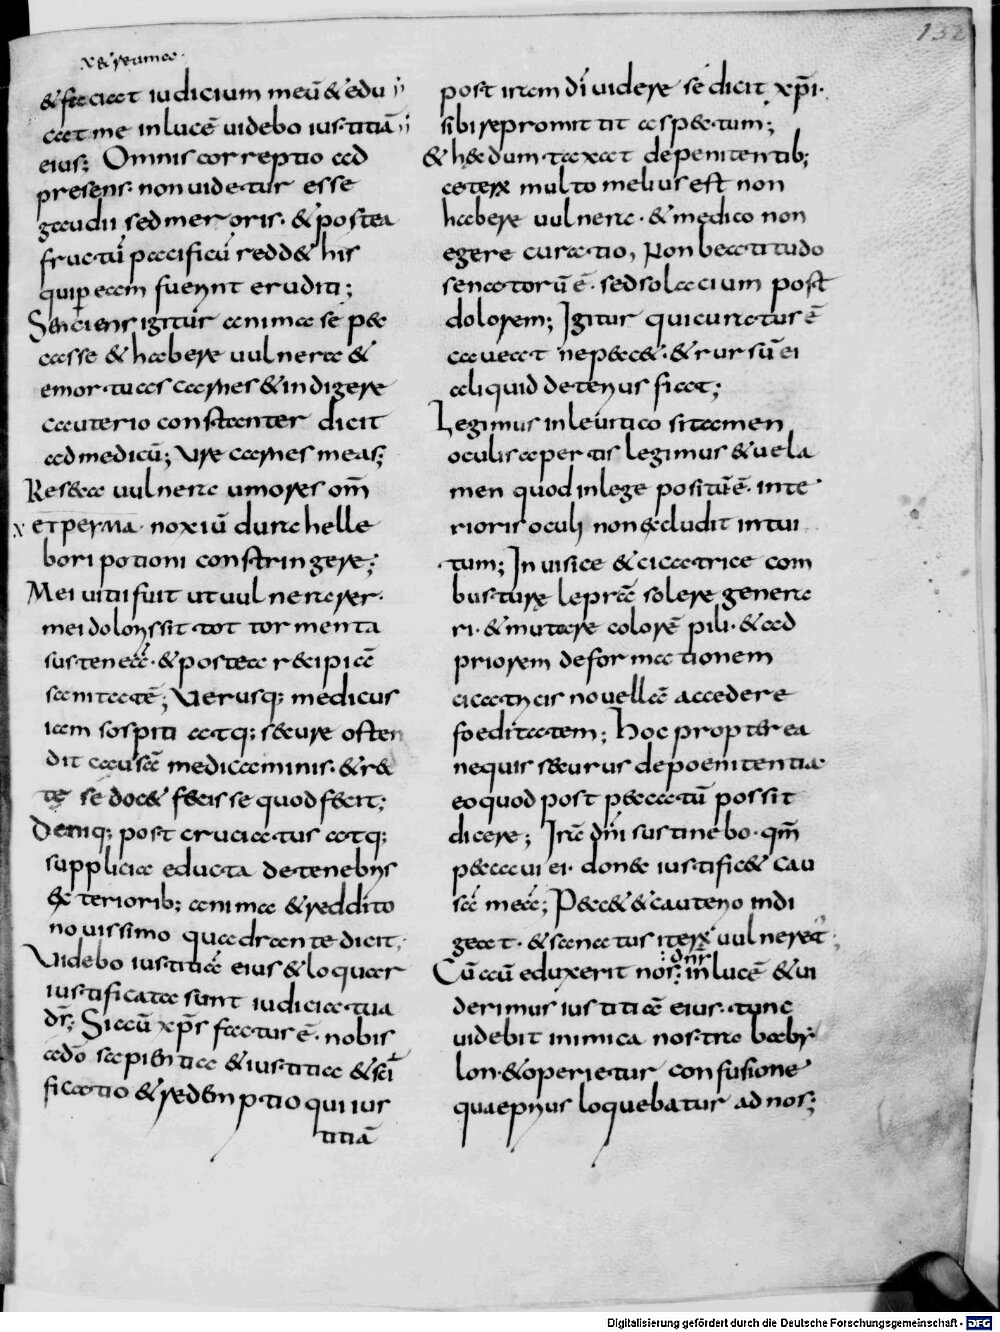 132
x & reuma
& faciat iudicium meū & edu
cat me in lucē uidebo iustitiā
eius; Omnis correptio ad
presens non uidetur esse
gaudii sed meroris · & postea
fructū pacificū redd& his
qui p eam fuerint eruditi;
Sentiens igitur anima se pec
casse & habere uulnera &
emortuas carnes & indigere
cauterio constanter dicit
ad medicū; Ure carnes meas;
Reseca uulnera umores om̄
x et perma · noxiū dura helle
bori potioni constringere;
Mei uitii fuit ut uulnerarer ·
mei doloris sit tot tormenta
sustenere · & postea recipiā
sanitatē; Uerusq; medicus
iam sospiti atq; secure osten
dit causā medicaminis · & rec
te se doc& fecisse quod fecit;
Deniq; post cruciatus atq;
supplicia educta de tenebris
exteriorib; anima & reddito
nouissimo quadrante dicit,
Uidebo iustitiā eius & loquar
iustificata sunt iudicia tua
ds̄; Si aū xp̄s factus ē · nobis
a dō sapientia & iustitia & sc̄i
ficatio & redemptio qui ius
titiā
post iram dī uidere se dicit xp̄i ·
sibi repromittit aspectum;
& hec dum taxat de penitentib;
ceterū multo melius est non
habere uulnera · & medico non
egere curatio, Non beatitudo
senatorū ē · sed solacium post
dolorem; Igitur qui curatur ē
caueat ne pecc& · & rursū ei
aliquid deterius fiat;
Legimus in leuitico si tamen
oculis apertis legimus & uela
men quod in lege positū ē · inte
rioris oculi non excludit intui
tum; In uisice & cicatrice com
busturę leprā solere genera
ri · & mutare colorē pili · & ad
priorem deformationem
cicatricis nouellā accedere
foeditatem; Hoc propterea
ne quis securus de poenitentia
eo quod post peccatū possit
dicere; Irā dn̄i sustinebo · qm̄
peccaui ei · donec iustific& cau
sā meā; Pecc& & cauterio indi
geat · & sanatus iterū uulneret;
: dn̄s
Cū aū eduxerit nos: in lucē & ui
derimus iustitiā eius · tunc
uidebit inimica nostra baby
lon · & operietur confusione
quae prius loquebatur ad nos;
Digitalisierung gefördert durch die Deutsche Forschungsgemeinschaft - DFG